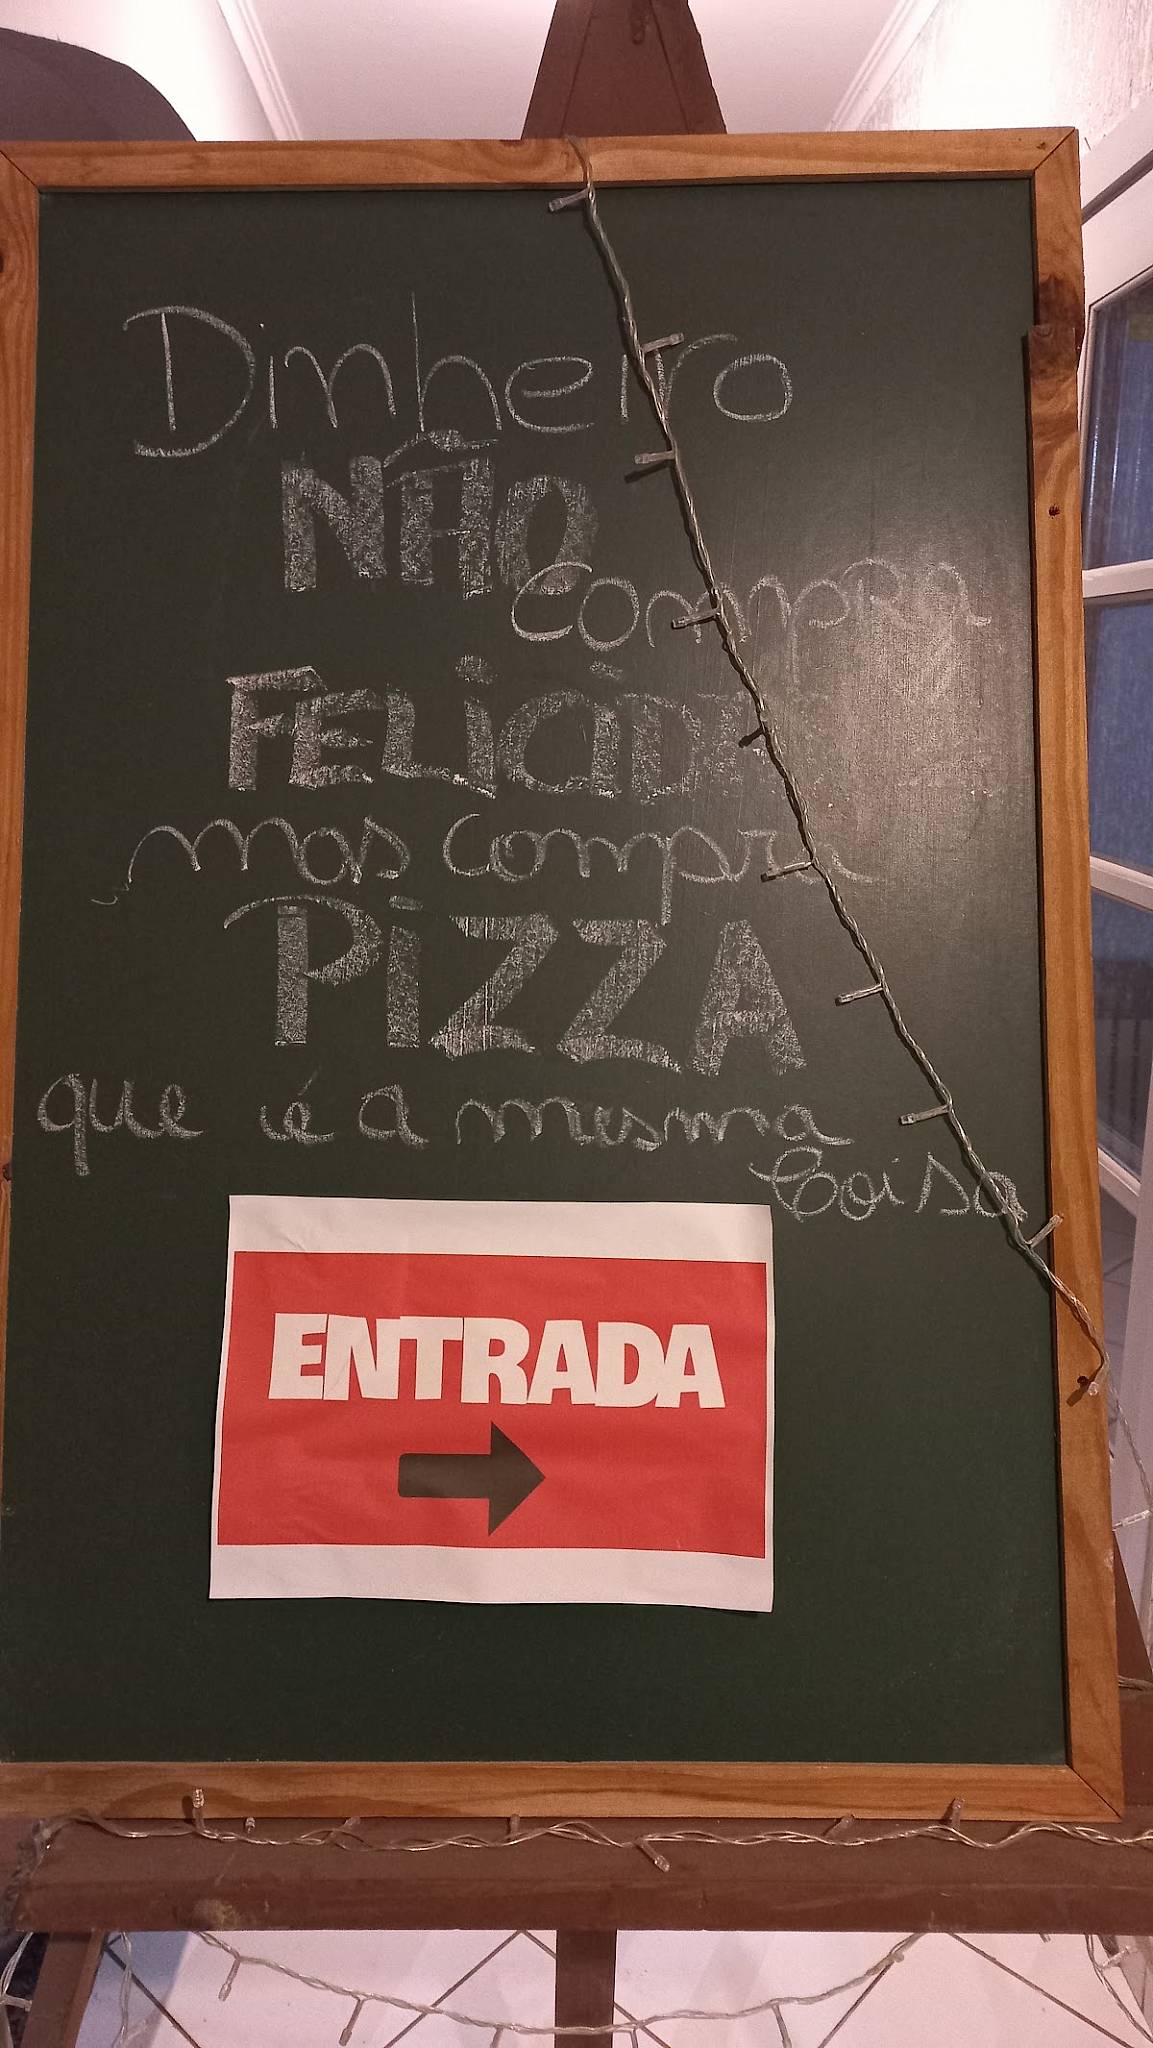 Dinheiro
NÃO
compra
FELiCiDA
mas compra
PiZZA
que é a mesma
Coisa
ENTRADA